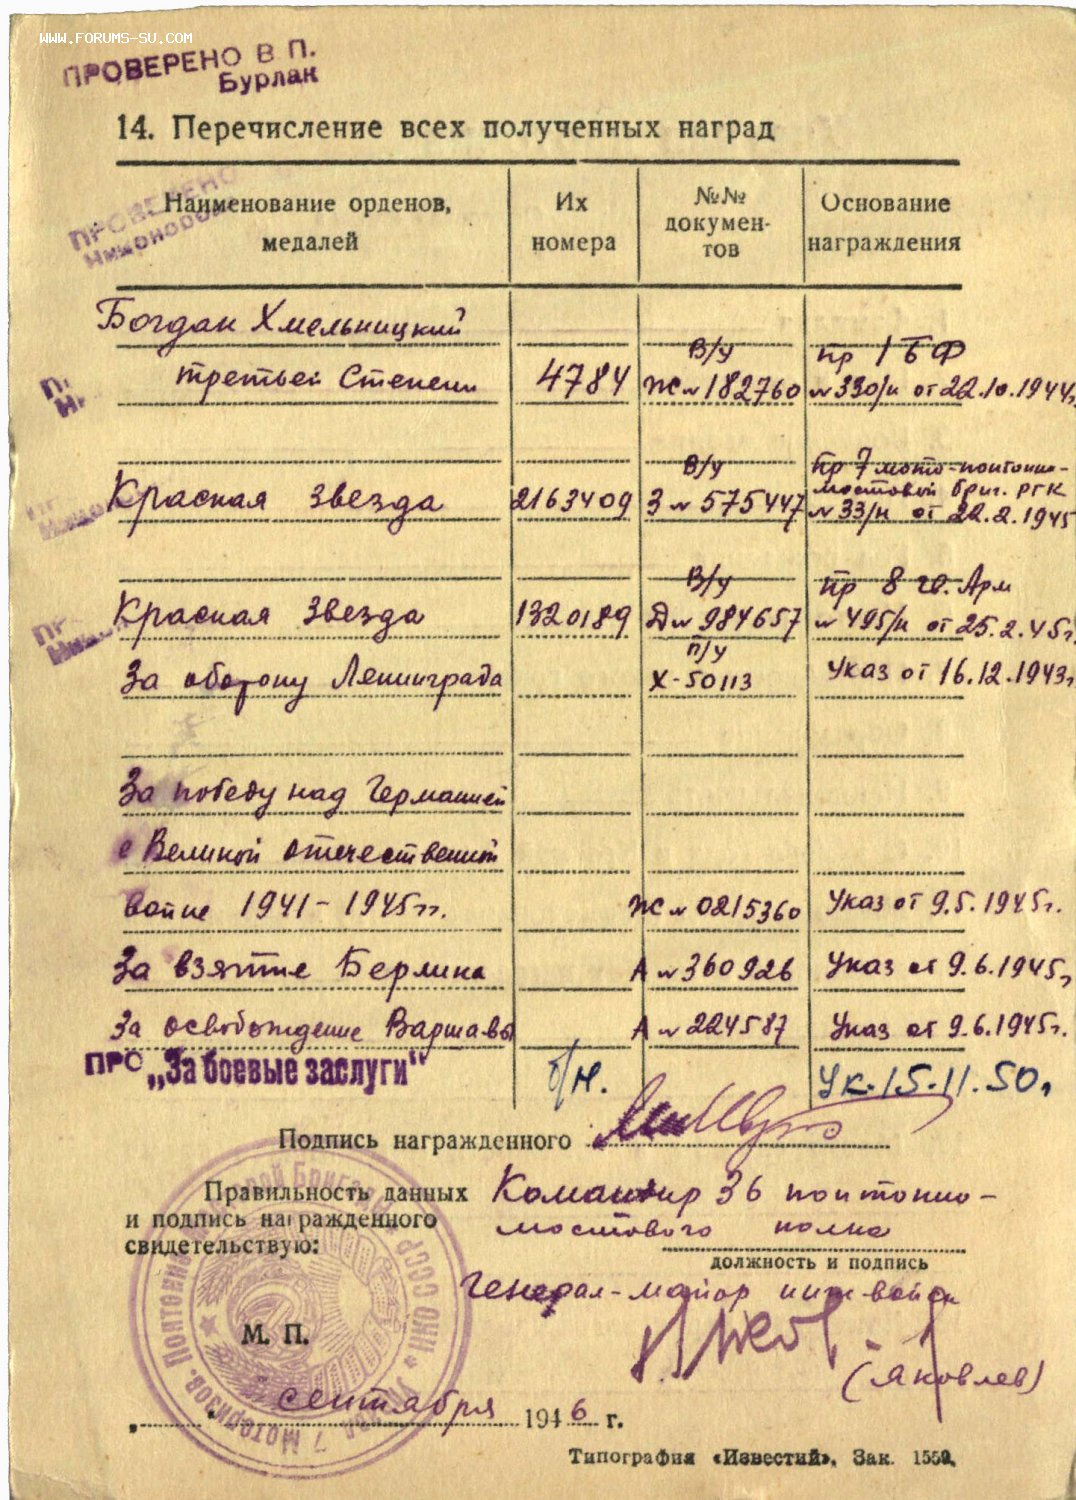 WWW.FORUMS-SU.COM
ПРОВЕРЕНО В П.
Бурлак
14. Перечисление всех полученных наград
ПРОВЕРЕНО
Наименование орденов, медалей
Их номера
№№ документов
Основание награждения
Богдан Хмельницкий
третьей Степени 4784 В/У Ж № 182760 пр 1 БФ № 330/н от 22.10.1944г.
Красная звезда 2163409 В/У З № 575447 Пр 7 мото-понтонно-мостовой бриг. РГК № 33/н от 22.2.1945
Красная звезда 1320189 В/У Д № 984657 пр 8 гв. Арм № 495/н от 25.2.45г.
За оборону Ленинграда П/У Х-50113 Указ от 16.12.1943г.
За победу над Германией
в Великой отечественной
войне 1941-1945гг. Ж № 0215360 Указ от 9.5.1945г.
За взятие Берлина А № 360926 Указ от 9.6.1945г.
За освобождение Варшавы А № 224587 Указ от 9.6.1945г.
ПРО „За боевые заслуги" б/н. Ук. 15.11.50г
Подпись награжденного
Правильность данных
и подпись награжденного
свидетельствую:
Командир 36 понтонно-
мостового полка
должность и подпись
Генерал-майор инж-войск
М. П.
(Яковлев)
„ " сентября 1946 г.
Типография «Известий». Зак. 1559.